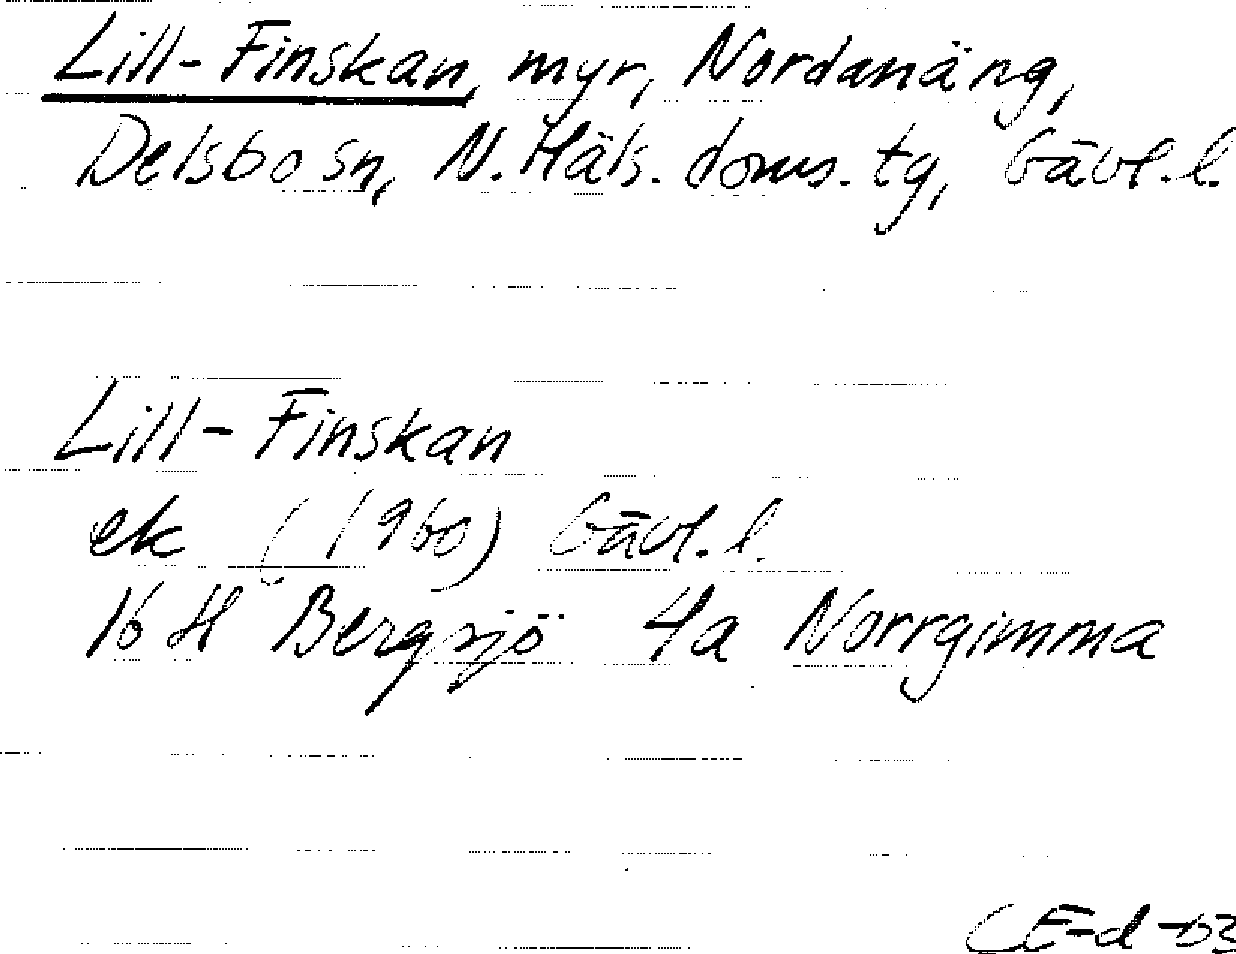 Lill-Finskan, myr, Nordanäng,
Delsbo sn, N. Häls. doms. tg, Gävl. l.
Lill-Finskan
ek (1960) Gävl. l.
16 H Bergsjö 4a Norrgimma